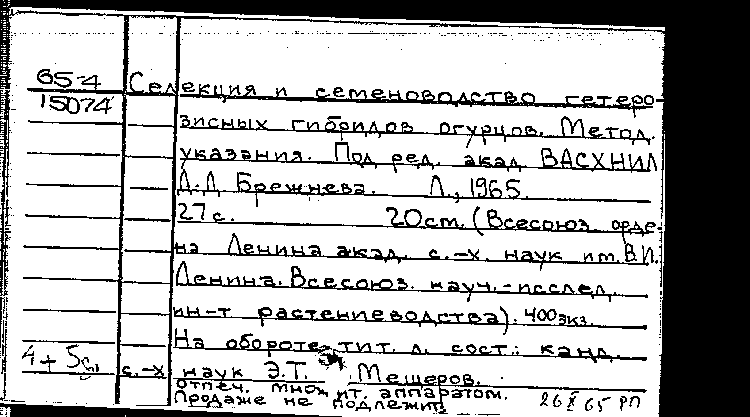 65-4 Селекция и семеноводство гетеро-
15074 зисных гибридов огурцов. Метод.
указания. Под ред. акад. ВАСХНИЛ
Д.Д. Брежнева. Л., 1965.
27 с. 20 см. (Всесоюз. орде-
на Ленина акад. с.-х. наук им. В.И.
Ленина. Всесоюз. науч.-исслед.
ин-т растениеводства). 400 экз.
На обороте тит. л. сост.: канд.
с.-х наук Э.Т. Мещеров.
отпеч. множит. аппаратом.
Продаже не подлежит